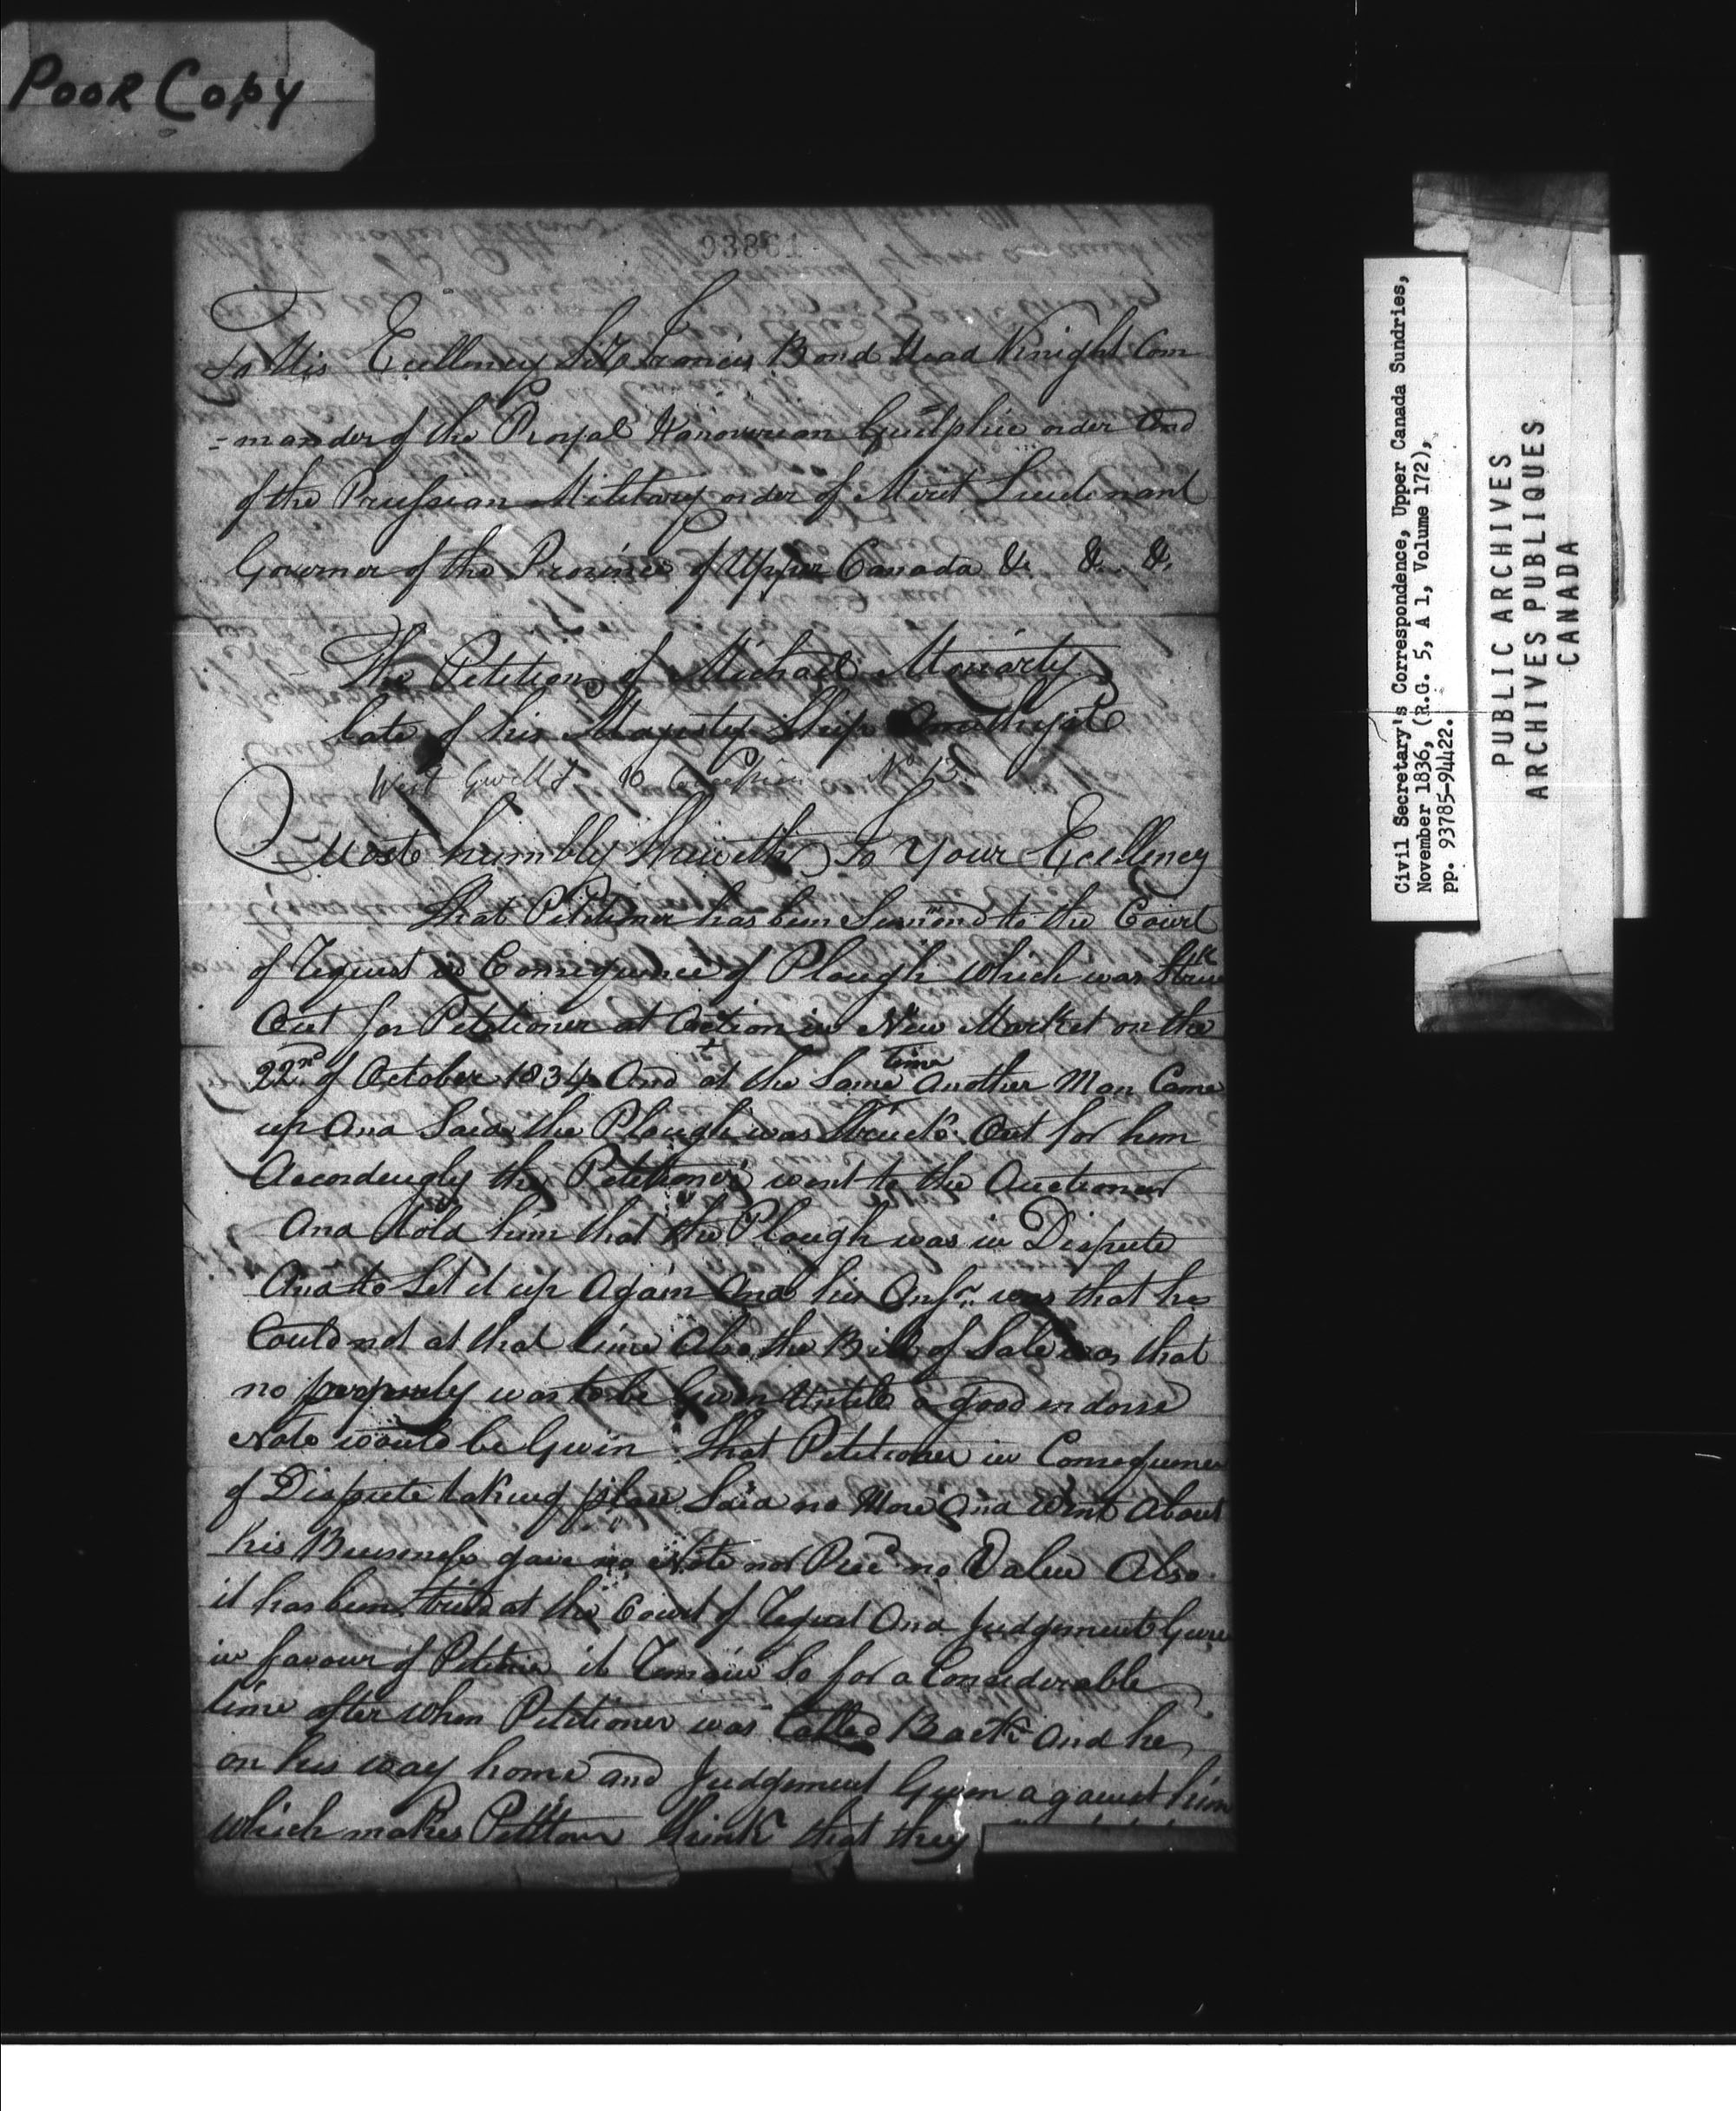 POOR Copy
93861
To His Ecellency Sir Francis Bond Head Knight Com
=mander of the Royal Hanoverian Guelphic order And
of the Prussian Military order of Merit Lieutenant
Governer of the Province of Upper Canada &. &. &.
The Petition of Michael Moriarty
late of his Majesty Ship Amethyst
West Gwill 10 Concession No 13
Most humbly Sheweth To Your Ecellency
That Petitioner has been Sumond to the Court
of Request in Consequence of Plough which was Struck
Out for Petitioner at Action in New Market on the
22nd of October 1834 And at the Same time Another Man Came
up And Said the Plough was Struck Out for him
Accordingly the Petitioner went to the Auctioneer
And told him that the Plough was in Dispute
And to Set it up Again And his Ansr. was that he
Could not at that time Also the Bill of Sale was that
no property was to be Given Untill a good endorse
Note would be Given That Petitioner in Consequence
of Dispute taking place Said no More And Went About
his Business gave no Note nor Recd no Value Also
it has been tried at the Court of Request And Judgement Given
in favour of Petitioner it Remain So for a Considerable
time after when Petitioner was Called Back And he
on his way home and Judgement Given against him
which makes Petitioner think that they
Civil Secretary's Correspondence, Upper Canada Sundries,
November 1836, (R.G. 5, A 1, Volume 172),
pp. 93785-94422.
PUBLIC ARCHIVES
ARCHIVES PUBLIQUES
CANADA